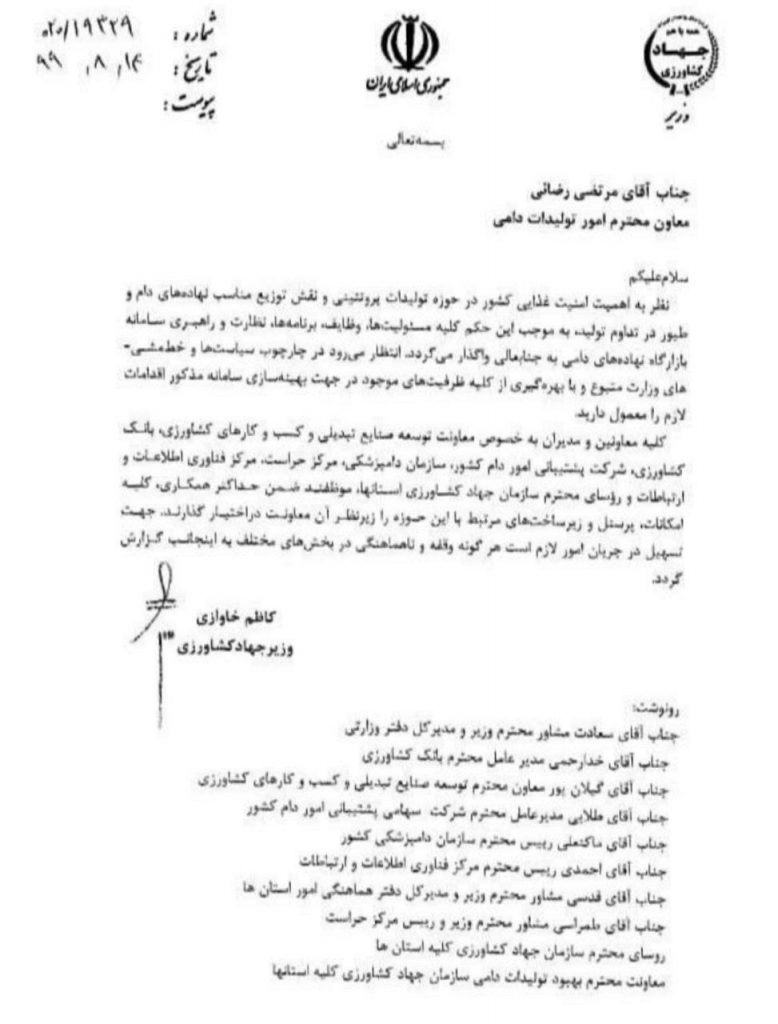 همه با هم
جهاد
کشاورزی
وزیر
جمهوری اسلامی ایران
شماره : ۰۲۰/۱۹۳۲۹
تاریخ : ۹۹ , ۸ , ۱۴
پیوست :
بسمه‌تعالی
جناب آقای مرتضی رضائی
معاون محترم امور تولیدات دامی
سلام‌علیکم
نظر به اهمیت امنیت غذایی کشور در حوزه تولیدات پروتئینی و نقش توزیع مناسب نهاده‌های دام و
طیور در تداوم تولید، به موجب این حکم کلیه مسئولیت‌ها، وظایف، برنامه‌ها، نظارت و راهبری سامانه
بازارگاه نهاده‌های دامی به جنابعالی واگذار می‌گردد. انتظار می‌رود در چارچوب سیاست‌ها و خط‌مشی-
های وزارت متبوع و با بهره‌گیری از کلیه ظرفیت‌های موجود در جهت بهینه‌سازی سامانه مذکور اقدامات
لازم را معمول دارید.
کلیه معاونین و مدیران به خصوص معاونت توسعه صنایع تبدیلی و کسب و کارهای کشاورزی، بانک
کشاورزی، شرکت پشتیبانی امور دام کشور، سازمان دامپزشکی، مرکز حراست، مرکز فناوری اطلاعات و
ارتباطات و رؤسای محترم سازمان جهاد کشاورزی استانها، موظفند ضمن حداکثر همکاری، کلیه
امکانات، پرسنل و زیرساخت‌های مرتبط با این حوزه را زیرنظر آن معاونت دراختیار گذارند. جهت
تسهیل در جریان امور لازم است هر گونه وقفه و ناهماهنگی در بخش‌های مختلف به اینجانب گزارش
گردد.
کاظم خاوازی
وزیرجهادکشاورزی
رونوشت:
جناب آقای سعادت مشاور محترم وزیر و مدیرکل دفتر وزارتی
جناب آقای خدارحمی مدیر عامل محترم بانک کشاورزی
جناب آقای گیلان پور معاون محترم توسعه صنایع تبدیلی و کسب و کارهای کشاورزی
جناب آقای طلایی مدیرعامل محترم شرکت سهامی پشتیبانی امور دام کشور
جناب آقای ماکنعلی رییس محترم سازمان دامپزشکی کشور
جناب آقای احمدی رییس محترم مرکز فناوری اطلاعات و ارتباطات
جناب آقای قدسی مشاور محترم وزیر و مدیرکل دفتر هماهنگی امور استان ها
جناب آقای طمراسی مشاور محترم وزیر و رییس مرکز حراست
روسای محترم سازمان جهاد کشاورزی کلیه استان ها
معاونت محترم بهبود تولیدات دامی سازمان جهاد کشاورزی کلیه استانها